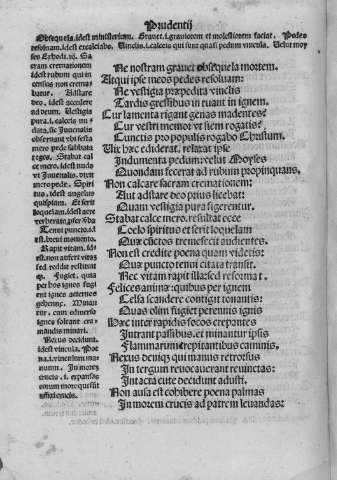 Prudentij
Obsequela. idest ministerium. Grauet. i. grauiorem et molestiorem faciat. Pedes
resoluam. idest excalciabo. Vinclis. i. calceis qui sunt quasi pedum vincula. Velut moy
ses Exhodi. iij. Sa
cram cremationem
idest rubum qui in
census non crema
batur. Adstare
deo, idest accedere
ad deum. Vestigia
pura. i. calciata nu
data, sic Iuuenalis
obseruant vbi festa
mero pede sabbata
reges. Stabat cal
ce mero. idest nudo
vt Iuuenalis.
mero pede. Spiri
tus, idest angelus
quispiam. Et serit
loquelam. idest aere
verberato
Temni puncto. id
est. breui momento.
Rapit vitam. id
est. non aufert vitā
sed reddit restituit
Fugiet. quia
per hos ignes fugi
ent ignes aeternos
gehennę.
tur, eum aduerso
ignes solent cre
mandis minari.
Nexus occidunt.
idest vincula. Poe
na. i. vincientem ma
nuum. In morem
crucis. i. expansas
enim more sunt
affixi crucis.
Ne nostram grauet obsequela mortem.
Atqui ipse meos pedes resoluam:
Ne vestigia præpedita vinclis
Tardis gressibus in ruant in ignem.
Cur lamenta rigant genas madentes?
Cur vestri memor vt siem rogatis?
Cunctis pro populis rogabo Christum.
Vix hæc ediderat, relaxat ipse
Indumenta pedum: velut Moyses
Quondam fecerat ad rubum propinquans,
Non calcare sacram cremationem:
Aut adstare deo prius licebat:
Quam vestigia pura figerentur.
Stabat calce mero, resultat ecce
Coelo spiritus et serit loquelam
Quæ cūctos tremefecit audientes.
Non est credite poena quam videtis:
Quæ puncto tenui citata transit.
Nec vitam rapit illa: sed reformat.
Felices animę: quibus per ignem
Celsa scandere contigit tonantis:
Quas olim fugiet perennis ignis
Hæc inter rapidos focos crepantes
Intrant passibus. et minantur ipsis
Flammarum trepitantibus caminis.
Nexus deniqȝ qui manus retrorsus
In tergum reuocauerant reuinctas:
Intacta cute decidunt adusti.
Non ausa est cohibere poena palmas
In morem crucis ad patrem leuandas: